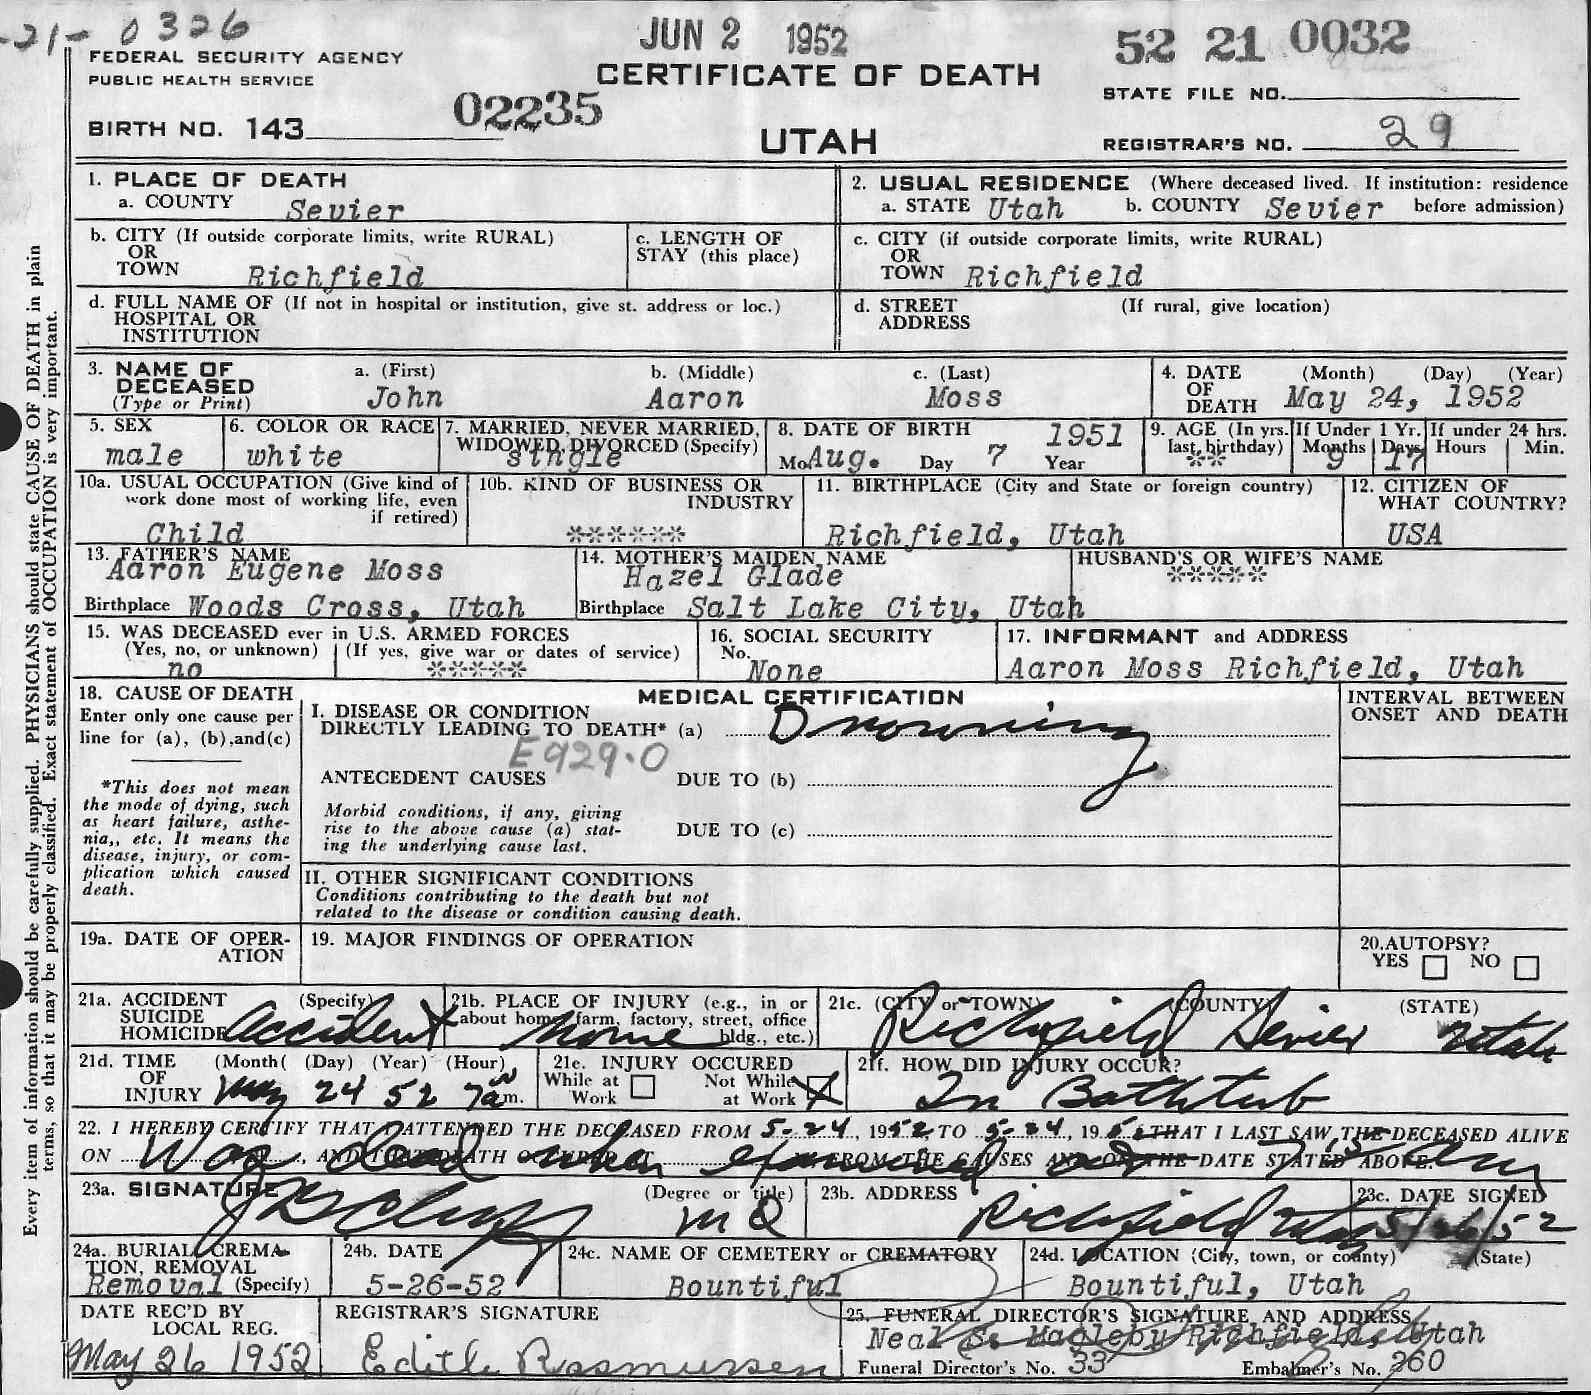 -21- 0326
JUN 2 1952
52 21 0032
FEDERAL SECURITY AGENCY
PUBLIC HEALTH SERVICE
CERTIFICATE OF DEATH
STATE FILE NO.
BIRTH NO. 143
02235
UTAH
REGISTRAR'S NO. 29
Every item of information should be carefully supplied. PHYSICIANS should state CAUSE OF DEATH in plain
terms, so that it may be properly classified. Exact statement of OCCUPATION is very important.
1. PLACE OF DEATH
a. COUNTY Sevier
2. USUAL RESIDENCE (Where deceased lived. If institution: residence
a. STATE Utah b. COUNTY Sevier before admission)
b. CITY (If outside corporate limits, write RURAL)
OR
TOWN Richfield
c. LENGTH OF
STAY (this place)
c. CITY (if outside corporate limits, write RURAL)
OR
TOWN Richfield
d. FULL NAME OF (If not in hospital or institution, give st. address or loc.)
HOSPITAL OR
INSTITUTION
d. STREET (If rural, give location)
ADDRESS
3. NAME OF a. (First) b. (Middle) c. (Last)
DECEASED
(Type or Print) John Aaron Moss
4. DATE (Month) (Day) (Year)
OF
DEATH May 24, 1952
5. SEX
male
6. COLOR OR RACE
white
7. MARRIED, NEVER MARRIED,
WIDOWED, DIVORCED (Specify)
single
8. DATE OF BIRTH 1951
Mo. Aug. Day 7 Year
9. AGE (In yrs. last birthday)
**
If Under 1 Yr.
Months Days
9 17
If under 24 hrs.
Hours Min.
10a. USUAL OCCUPATION (Give kind of
work done most of working life, even
if retired)
Child
10b. KIND OF BUSINESS OR
INDUSTRY
******
11. BIRTHPLACE (City and State or foreign country)
Richfield, Utah
12. CITIZEN OF
WHAT COUNTRY?
USA
13. FATHER'S NAME
Aaron Eugene Moss
Birthplace Woods Cross, Utah
14. MOTHER'S MAIDEN NAME
Hazel Glade
Birthplace Salt Lake City, Utah
HUSBAND'S OR WIFE'S NAME
*****
15. WAS DECEASED ever in U.S. ARMED FORCES
(Yes, no, or unknown) (If yes, give war or dates of service)
no *****
16. SOCIAL SECURITY
No.
None
17. INFORMANT and ADDRESS
Aaron Moss Richfield, Utah
18. CAUSE OF DEATH
Enter only one cause per
line for (a), (b),and(c)
*This does not mean
the mode of dying, such
as heart failure, asthe-
nia,, etc. It means the
disease, injury, or com-
plication which caused
death.
MEDICAL CERTIFICATION
I. DISEASE OR CONDITION
DIRECTLY LEADING TO DEATH* (a) Drowning
E929.0
ANTECEDENT CAUSES DUE TO (b)
Morbid conditions, if any, giving
rise to the above cause (a) stat-
ing the underlying cause last.
DUE TO (c)
II. OTHER SIGNIFICANT CONDITIONS
Conditions contributing to the death but not
related to the disease or condition causing death.
INTERVAL BETWEEN
ONSET AND DEATH
19a. DATE OF OPER-
ATION
19. MAJOR FINDINGS OF OPERATION
20.AUTOPSY?
YES NO
21a. ACCIDENT (Specify)
SUICIDE
HOMICIDE Accident
21b. PLACE OF INJURY (e.g., in or
about home, farm, factory, street, office
bldg., etc.)
Home
21c. (CITY or TOWN) (COUNTY) (STATE)
Richfield Sevier Utah
21d. TIME (Month( (Day) (Year) (Hour)
OF
INJURY May 24 52 7am.
21e. INJURY OCCURED
While at Work Not While at Work X
21f. HOW DID INJURY OCCUR?
In Bathtub
22. I HEREBY CERTIFY THAT I ATTENDED THE DECEASED FROM 5-24, 1952, TO 5-24, 1952 THAT I LAST SAW THE DECEASED ALIVE
ON , AND THAT DEATH OCCURRED AT FROM THE CAUSES AND ON THE DATE STATED ABOVE.
Was dead when examined
23a. SIGNATURE (Degree or title)
MD
23b. ADDRESS
Richfield Utah
23c. DATE SIGNED
5/26/52
24a. BURIAL, CREMA-
TION, REMOVAL
Removal (Specify)
24b. DATE
5-26-52
24c. NAME OF CEMETERY or CREMATORY
Bountiful
24d. LOCATION (City, town, or county) (State)
Bountiful, Utah
DATE REC'D BY
LOCAL REG.
May 26 1952
REGISTRAR'S SIGNATURE
Edith Rasmussen
25. FUNERAL DIRECTOR'S SIGNATURE AND ADDRESS
Neal S. Magleby Richfield, Utah
Funeral Director's No. 33 Embalmer's No. 260